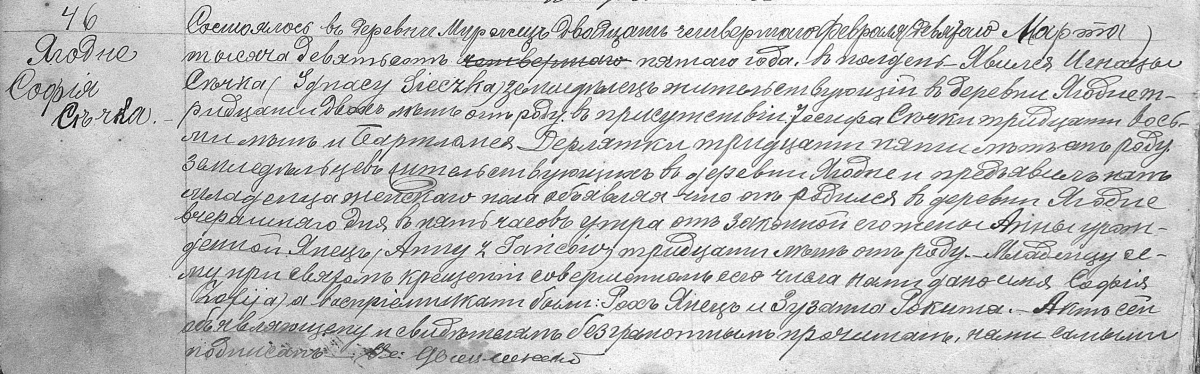 46
Ягодне
Софія
Сѣчка.
Состоялось въ деревни Двадцать четвертаго Февраля девятаго Марта
тысяча девятьсотъ четвертаго пятаго года въ полдень. Явился Игнацы
Сѣчка (Ignacy Sieczka) земледѣлецъ жительствующій въ деревни Ягодне т-
ридцати двохъ лѣтъ отъ роду, въ присутствіи Іосифа Сѣчки тридцати вось-
ми лѣтъ и Бартломея Дерлятки тридцати пяти лѣтъ отъ роду
земледѣльцевъ жительствующихъ въ деревни Ягодне и предъявилъ намъ
младенца женскаго пола объявляя что онъ родился въ деревни Ягодне
вчерашняго дня въ пять часовъ утра отъ законной его жены Анны урож-
денной Янецъ (Anny z Jańców) тридцати лѣтъ отъ роду. Младенцу се-
му при святомъ крещеніи совершенномъ сего числа нами дано имя Софія
(Zofija) а воспріемниками были: Рохъ Янецъ и Зузанна Рокита. Актъ сей
объявляющему и свидѣтелямъ безграмотнымъ прочитанъ, нами самыми
подписанъ